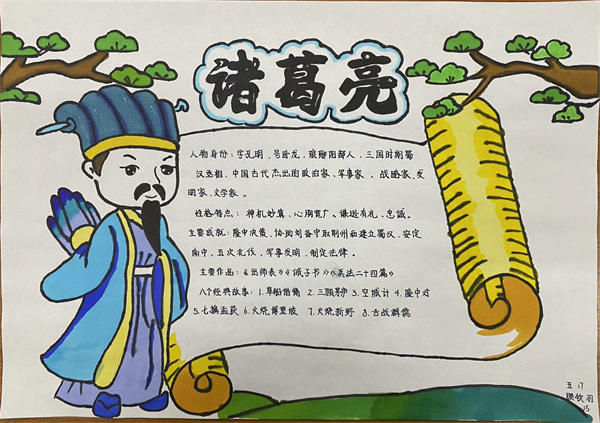 诸葛亮
人物身份：字孔明，号卧龙，琅琊阳都人，三国时期蜀
汉丞相，中国古代杰出的政治家、军事家、战略家、发
明家、文学家。
性格特点：神机妙算，心胸宽广、谦逊有礼，忠诚。
主要成就：隆中决策，协助刘备夺取荆州和建立蜀汉，安定
南中，五次北伐，军事发明，制定法律。
主要作品：《出师表》《诫子书》《兵法二十四篇》
八个经典故事：1.草船借箭 2.三顾茅庐 3.空城计 4.隆中对
5.七擒孟获 6.火烧博望坡 7.火烧新野 8.舌战群儒
五
钦羽
15